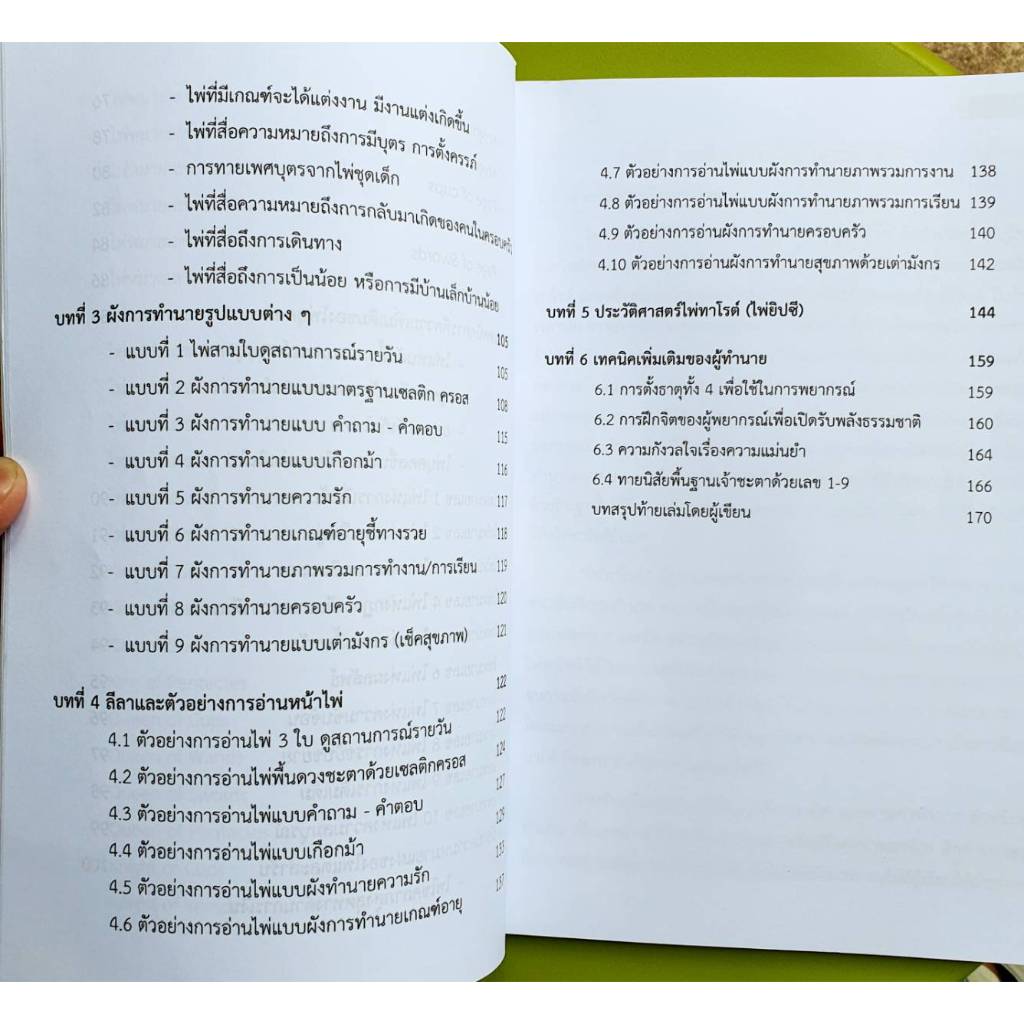 - ไพ่ที่มีเกณฑ์จะได้แต่งงาน มีงานแต่งเกิดขึ้น
- ไพ่ที่สื่อความหมายถึงการมีบุตร การตั้งครรภ์
- การทายเพศบุตรจากไพ่ชุดเด็ก
- ไพ่ที่สื่อความหมายถึงการกลับมาเกิดของคนในครอบครัว
- ไพ่ที่สื่อถึงการเดินทาง
- ไพ่ที่สื่อถึงการเป็นน้อย หรือการมีบ้านเล็กบ้านน้อย
บทที่ 3 ผังการทำนายรูปแบบต่าง ๆ 105
- แบบที่ 1 ไพ่สามใบดูสถานการณ์รายวัน 105
- แบบที่ 2 ผังการทำนายแบบมาตรฐานเซลติก ครอส 108
- แบบที่ 3 ผังการทำนายแบบ คำถาม - คำตอบ 115
- แบบที่ 4 ผังการทำนายแบบเกือกม้า 116
- แบบที่ 5 ผังการทำนายความรัก 117
- แบบที่ 6 ผังการทำนายเกณฑ์อายุชี้ทางรวย 118
- แบบที่ 7 ผังการทำนายภาพรวมการทำงาน/การเรียน 119
- แบบที่ 8 ผังการทำนายครอบครัว 120
- แบบที่ 9 ผังการทำนายแบบเต่ามังกร (เช็คสุขภาพ) 121
บทที่ 4 ลีลาและตัวอย่างการอ่านหน้าไพ่ 122
4.1 ตัวอย่างการอ่านไพ่ 3 ใบ ดูสถานการณ์รายวัน 122
4.2 ตัวอย่างการอ่านไพ่พื้นดวงชะตาด้วยเซลติกครอส 124
4.3 ตัวอย่างการอ่านไพ่แบบคำถาม - คำตอบ 127
4.4 ตัวอย่างการอ่านไพ่แบบเกือกม้า 129
4.5 ตัวอย่างการอ่านไพ่แบบผังทำนายความรัก 133
4.6 ตัวอย่างการอ่านไพ่แบบผังการทำนายเกณฑ์อายุ 137
4.7 ตัวอย่างการอ่านไพ่แบบผังการทำนายภาพรวมการงาน 138
4.8 ตัวอย่างการอ่านไพ่แบบผังการทำนายภาพรวมการเรียน 139
4.9 ตัวอย่างการอ่านผังการทำนายครอบครัว 140
4.10 ตัวอย่างการอ่านผังการทำนายสุขภาพด้วยเต่ามังกร 142
บทที่ 5 ประวัติศาสตร์ไพ่ทาโรต์ (ไพ่ยิปซี) 144
บทที่ 6 เทคนิคเพิ่มเติมของผู้ทำนาย 159
6.1 การตั้งธาตุทั้ง 4 เพื่อใช้ในการพยากรณ์ 159
6.2 การฝึกจิตของผู้พยากรณ์เพื่อเปิดรับพลังธรรมชาติ 160
6.3 ความกังวลใจเรื่องความแม่นยำ 164
6.4 ทายนิสัยพื้นฐานเจ้าชะตาด้วยเลข 1-9 166
บทสรุปท้ายเล่มโดยผู้เขียน 170